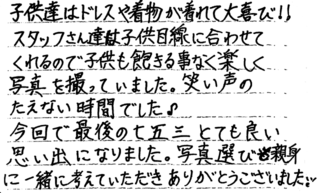 子供達はドレスや着物が着れて大喜び!!
スタッフさん達は子供目線に合わせて
くれるので子供も飽きる事なく楽しく
写真を撮っていました。笑い声の
たえない時間でした♪
今回で最後の七五三とても良い
思い出になりました。写真選びも親身
に一緒に考えていただきありがとうございました。